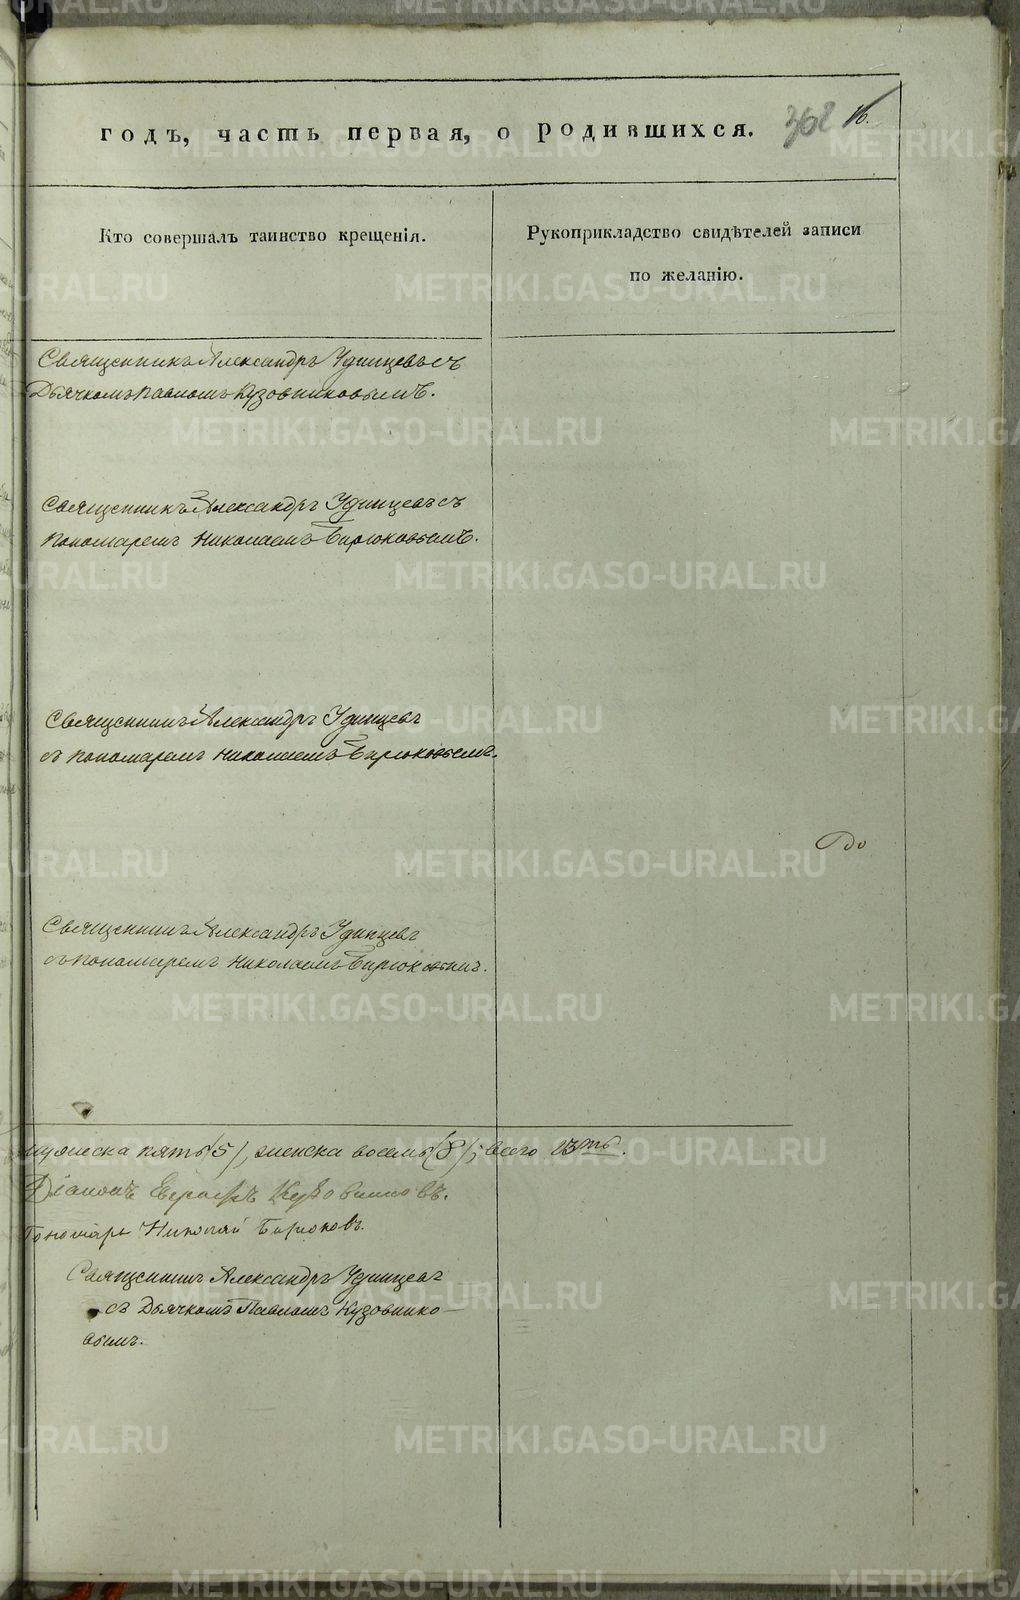 годъ, часть первая, о родившихся. 368 16.
Кто совершалъ таинство крещенія.
Рукоприкладство свидѣтелей записи
по желанію.
Священникъ Александръ Удинцевъ съ
Дьячкомъ Павломъ Кузовниковымъ.
Священникъ Александръ Удинцевъ съ
Пономаремъ Николаемъ Бирюковымъ.
Священникъ Александръ Удинцевъ
съ Пономаремъ Николаемъ Бирюковымъ.
До
Священникъ Александръ Удинцевъ
съ Пономаремъ Николаемъ Бирюковымъ.
мужеска пять (5), женска восемь (8); всего 13ть.
Діаконъ Кузовниковъ.
Пономарь Николай Бирюковъ.
Священникъ Александръ Удинцевъ
съ Дьячкомъ Павломъ Кузовнико-
вымъ.
METRIKI.GASO-URAL.RU